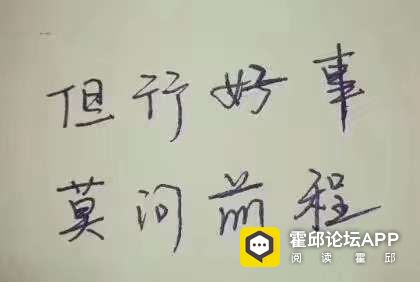 但行好事
莫问前程
霍邱论坛APP
阅读霍邱